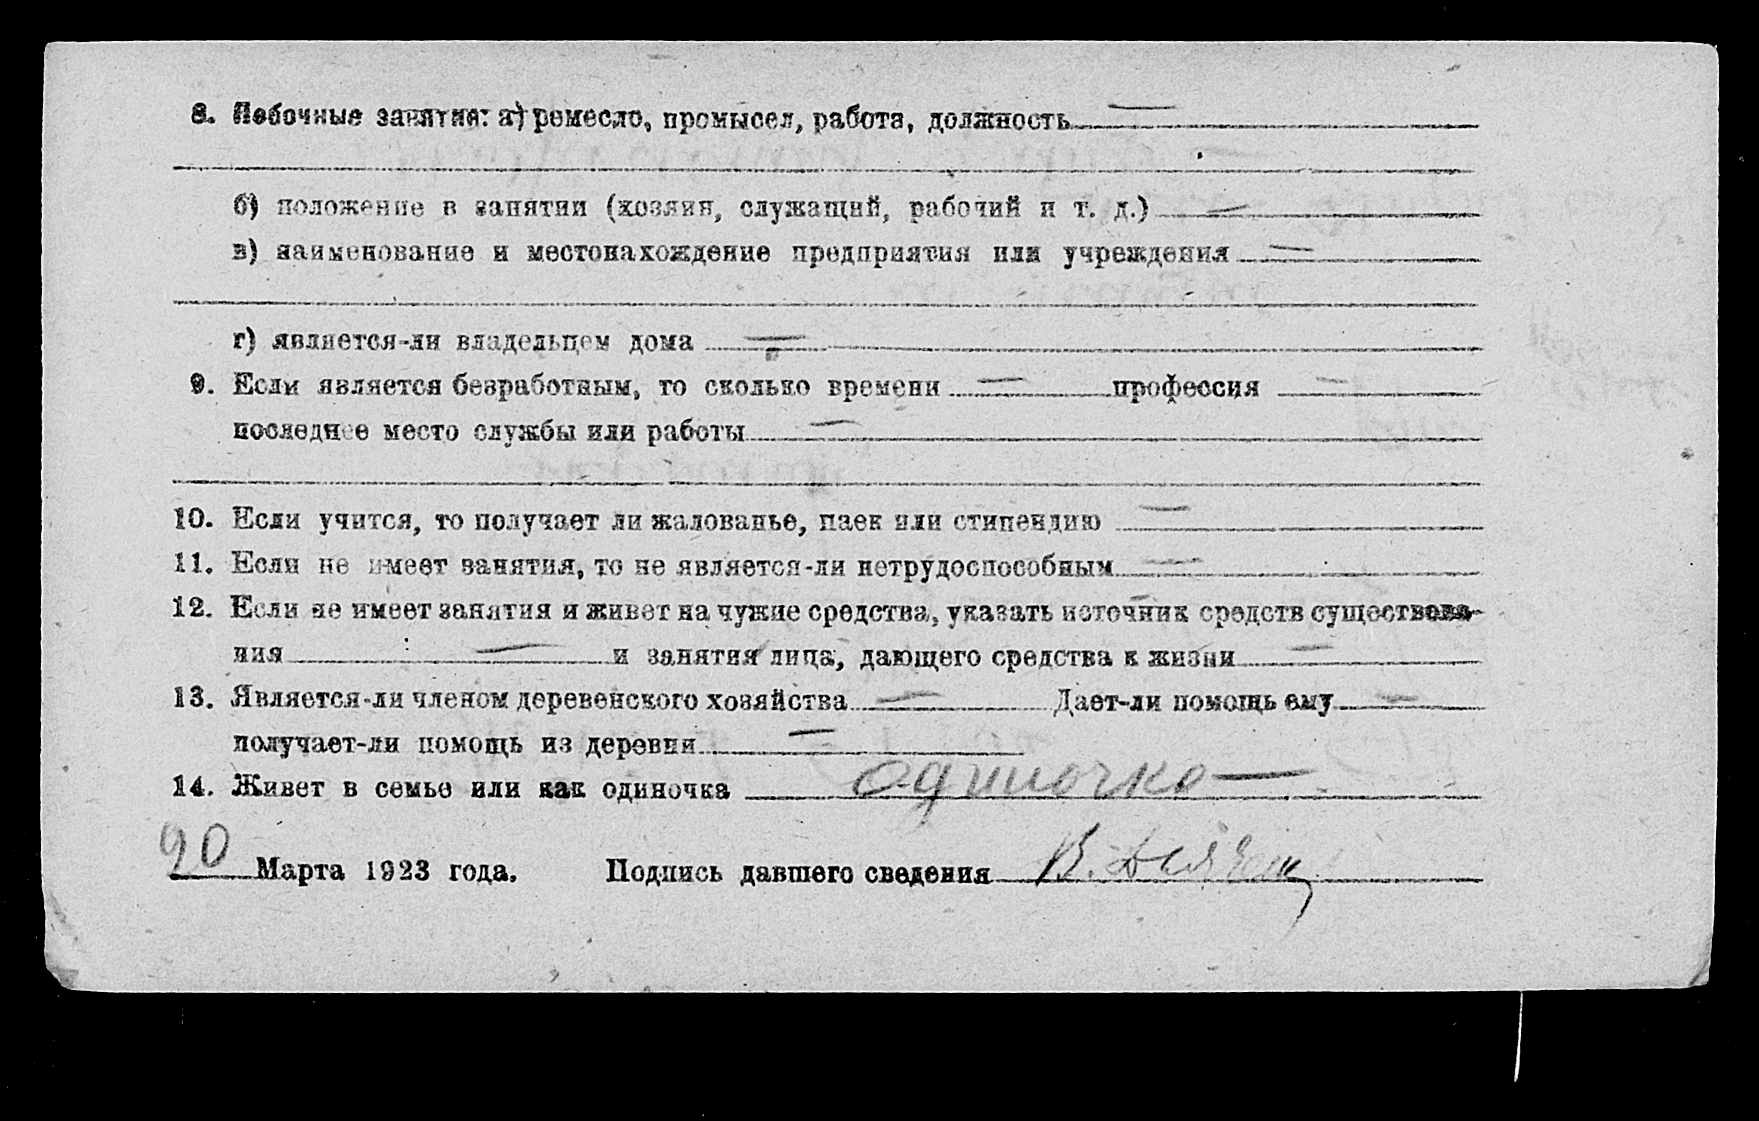 8. Побочные занятия: а) ремесло, промысел, работа, должность —
б) положение в занятии (хозяин, служащий, рабочий и т. д.) —
в) наименование и местонахождение предприятия или учреждения —
г) является-ли владельцем дома —
9. Если является безработным, то сколько времени — профессия —
последнее место службы или работы —
10. Если учится, то получает ли жалованье, паек или стипендию —
11. Если не имеет занятия, то не является-ли нетрудоспособным —
12. Если не имеет занятия и живет на чужие средства, указать источник средств существова-
ния — и занятия лица, дающего средства к жизни —
13. Является-ли членом деревенского хозяйства — Дает-ли помощь ему —
получает-ли помощь из деревни —
14. Живет в семье или как одиночка одиночко —
20 Марта 1923 года. Подпись давшего сведения В.